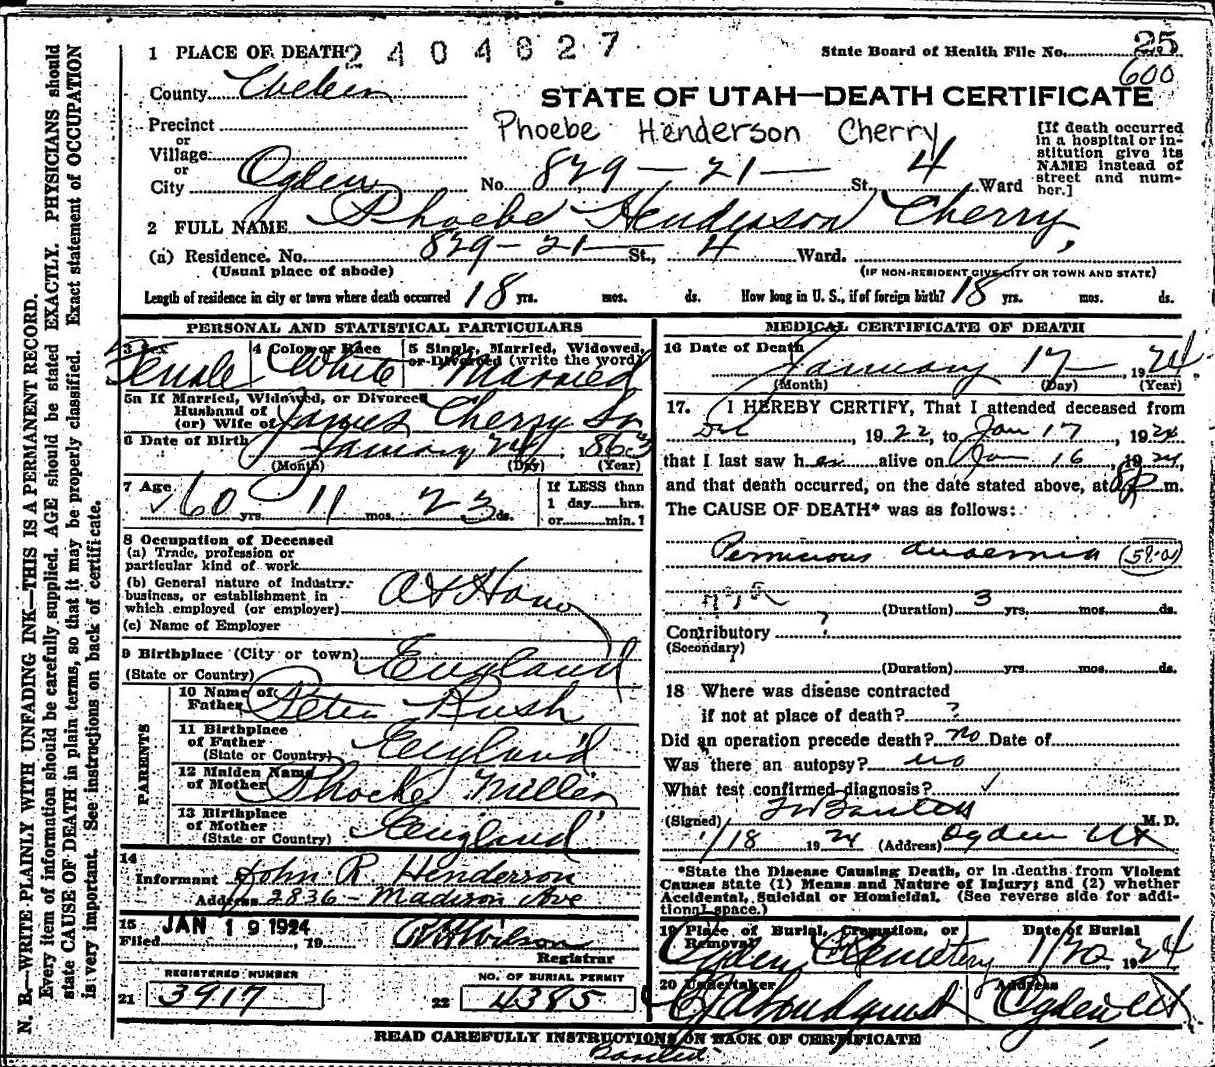 1 PLACE OF DEATH 2404627 State Board of Health File No. 25
600
County Weber
STATE OF UTAH—DEATH CERTIFICATE
Precinct
or
Village
or
City Ogden No. 829—21— St. 4 Ward
Phoebe Henderson Cherry
[If death occurred
in a hospital or in-
stitution give its
NAME instead of
street and num-
ber.]
2 FULL NAME Phoebe Henderson Cherry,
(a) Residence. No. 829—21— St., 4 Ward.
(Usual place of abode) (IF NON-RESIDENT GIVE CITY OR TOWN AND STATE)
Length of residence in city or town where death occurred 18 yrs. mos. ds. How long in U. S., if of foreign birth? 18 yrs. mos. ds.
PERSONAL AND STATISTICAL PARTICULARS
3 Sex 4 Color or Race 5 Single, Married, Widowed,
or Divorced (write the word)
Female White Married
5a If Married, Widowed, or Divorced
Husband of
(or) Wife of James Cherry Sr
6 Date of Birth January 24, 1863
(Month) (Day) (Year)
7 Age 60 yrs. 11 mos. 23 ds.
If LESS than
1 day......hrs.
or......min.?
8 Occupation of Deceased
(a) Trade, profession or
particular kind of work
(b) General nature of Industry,
business, or establishment in
which employed (or employer) At Home
(c) Name of Employer
9 Birthplace (City or town) England
(State or Country)
PARENTS
10 Name of
Father Peter Rush
11 Birthplace
of Father England
(State or Country)
12 Maiden Name
of Mother Phoebe Miller
13 Birthplace
of Mother England
(State or Country)
14
Informant John R. Henderson
Address 2836—Madison Ave
15 JAN 19 1924
Filed , 19 Wilson
Registrar
REGISTERED NUMBER NO. OF BURIAL PERMIT
21 3917 22 4385
MEDICAL CERTIFICATE OF DEATH
16 Date of Death January 17, 1924.
(Month) (Day) (Year)
17. I HEREBY CERTIFY, That I attended deceased from
Dec , 1922, to Jan 17, 1924
that I last saw her alive on Jan 16 1924,
and that death occurred, on the date stated above, at m.
The CAUSE OF DEATH* was as follows:
Pernicious anaemia
(Duration) 3 yrs. mos. ds.
Contributory
(Secondary)
(Duration) yrs. mos. ds.
18 Where was disease contracted
if not at place of death? ?
Did an operation precede death? no Date of
Was there an autopsy? no
What test confirmed diagnosis? ✓
(Signed) M. D.
1/18 1924 (Address) Ogden Ut
*State the Disease Causing Death, or in deaths from Violent
Causes state (1) Means and Nature of Injury; and (2) whether
Accidental, Suicidal or Homicidal. (See reverse side for addi-
tional space.)
19 Place of Burial, Cremation, or Date of Burial
Removal
Ogden Cemetery 1/20, 1924
20 Undertaker Address
Ogden Ut
READ CAREFULLY INSTRUCTIONS ON BACK OF CERTIFICATE
N. B.—WRITE PLAINLY WITH UNFADING INK—THIS IS A PERMANENT RECORD.
Every item of information should be carefully supplied. AGE should be stated EXACTLY. PHYSICIANS should
state CAUSE OF DEATH in plain terms, so that it may be properly classified. Exact statement of OCCUPATION
is very important. See instructions on back of certificate.